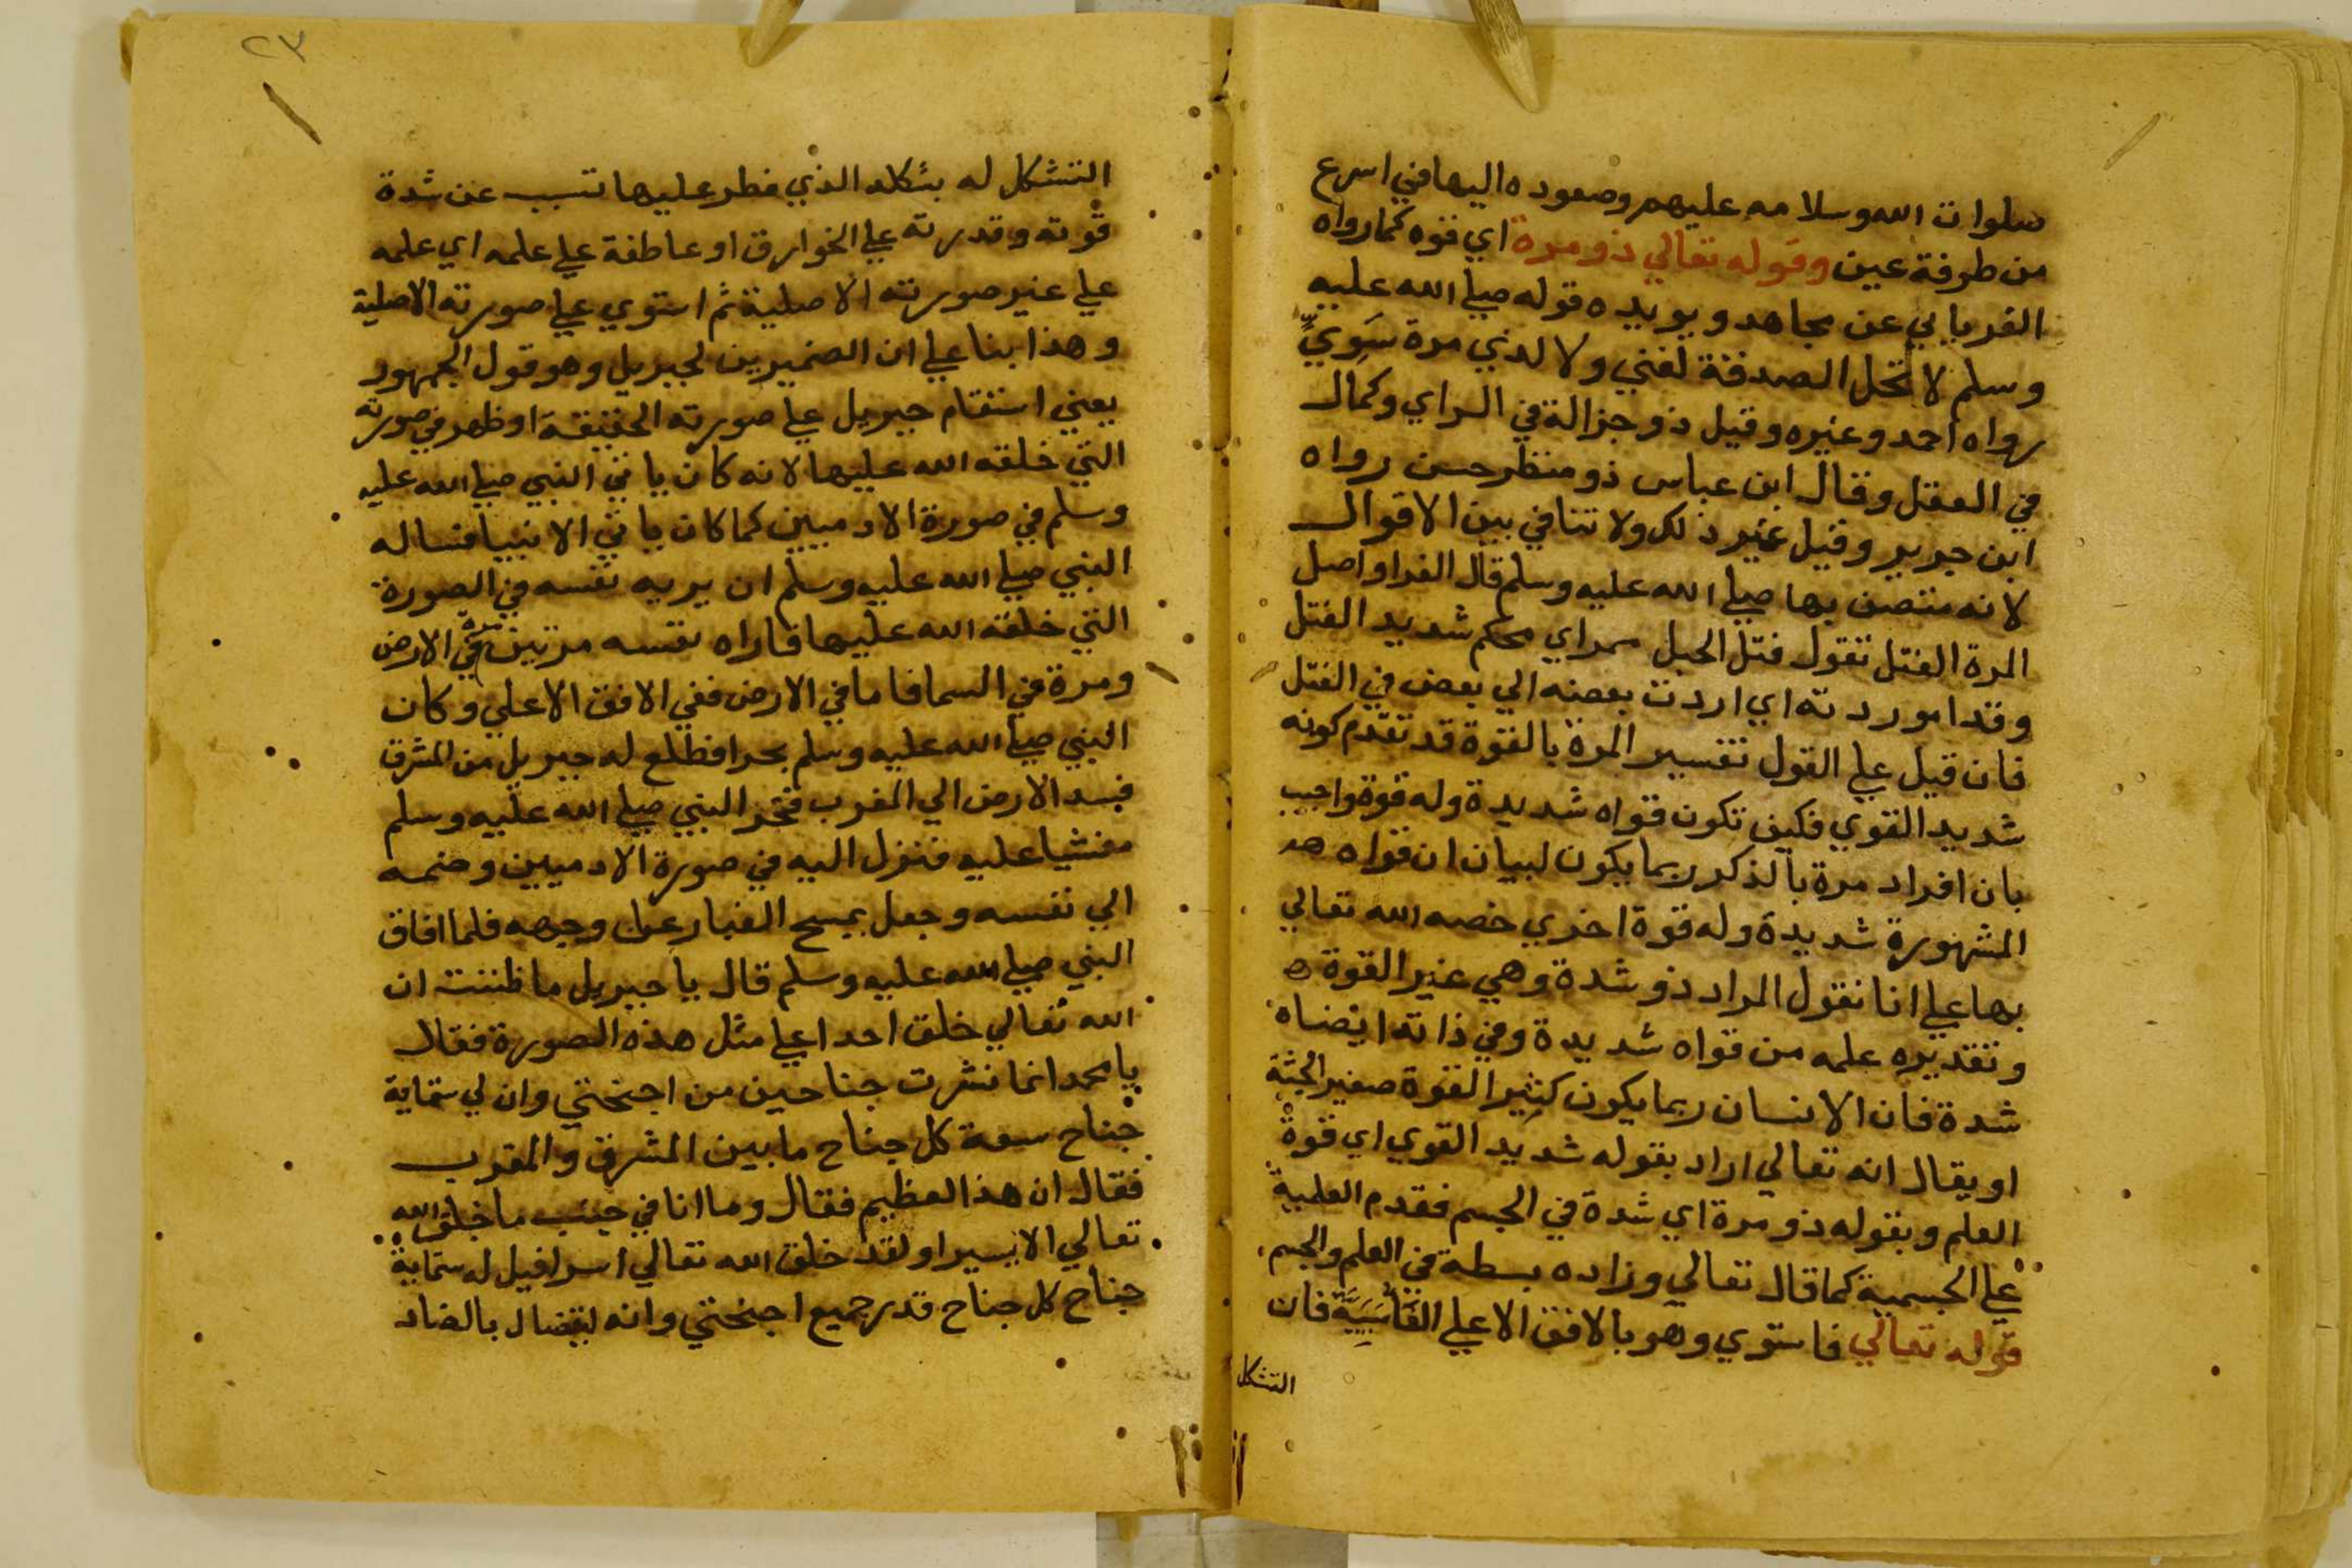 صلوات الله وسلامه عليهم وصعوده اليها في اسرع
من طرفة عين وقوله تعالي ذو مرة اي قوه كما رواه
الفريابي عن مجاهد ويويده قوله صلي الله عليه
وسلم لا تحل الصدقة لغني ولا لدني مرة سَوِيٍّ
رواه احمد وغيره وقيل ذو جزالة في الراي وكمال
في العقل وقال ابن عباس ذو منظر حسن رواه
ابن جرير وقيل غير ذلك ولا تنافي بين الاقوال
لانه متصف بها صلي الله عليه وسلم قال الفرا واصل
المرة الفتل تقول فتل الحبل ممراي محكم شديد الفتل
وقد اموردته اي اردت بعضه الي بعض في الفتل
فان قيل علي القول تفسير المرة بالقوة قد تقدم كونه
شديد القوي فكيف تكون قواه شديدة وله قوة واجيب
بان افراد مرة بالذكر ربما يكون لبيان ان قواه هد
المشهورة شديدة وله قوة اخري خصه الله تعالي
بها علي انا نقول المراد ذو شدة وهي غير القوة ه
وتقديره علمه من قواه شديدة وفي ذاته ايضاه
شدة فان الانسان ربما يكون كثير القوة صغير الجثة
او يقال انه تعالي اراد بقوله شديد القوي اي قوة
العلم وبقوله ذو مرة اي شدة في الجسم فقدم العلمية
علي الجسمية كما قال تعالي وزاده بسطة في العلم والجسم
قوله تعالي فاستوي وهو بالافق الاعلي الفَاسَبَبِيَّة فان
التشكل
٢٣
التشكل له بشكله الذي فطر عليها تسبب عن شدة
قوته وقدرته علي الخوارق او عاطفة علي علمه اي علمه
علي غير صورته الاصلية ثم استوي علي صورته الاصلية
وهذا بنا علي ان الضميرين لجبريل وهو قول الجمهور
يعني استقام جبريل علي صورته الحقيقة او ظهر في صورته
التي خلقه الله عليها لانه كان ياتي النبي صلي الله عليه
وسلم في صورة الادميين كما كان ياتي الانبيا فساله
النبي صلي الله عليه وسلم ان يريه نفسه في الصورة
التي خلقه الله عليها فاراه نفسه مرتين مرة في الارض
ومرة في السما فاما في الارض ففي الافق الاعلي وكان
النبي صلي الله عليه وسلم بحرا فطلع له جبريل من المشرق
فسد الارض الي المغرب فخر النبي صلي الله عليه وسلم
مغشيا عليه فنزل اليه في صورة الادميين وضمه
الي نفسه وجعل يمسح الغبار عن وجهه فلما افاق
النبي صلي الله عليه وسلم قال يا جبريل ما ظننت ان
الله تعالي خلق احدا علي مثل هذه الصورة فقال
يا محمد انما نشرت جناحين من اجنحتي وان لي ستماية
جناح سعة كل جناح ما بين المشرق والمغرب
فقال ان هذا لعظيم فقال وما انا في جنب ما خلق الله
تعالي الا يسيرا ولقد خلق الله تعالي اسرافيل له ستماية
جناح كل جناح قدر جميع اجنحتي وانه ليتضال بالضاد